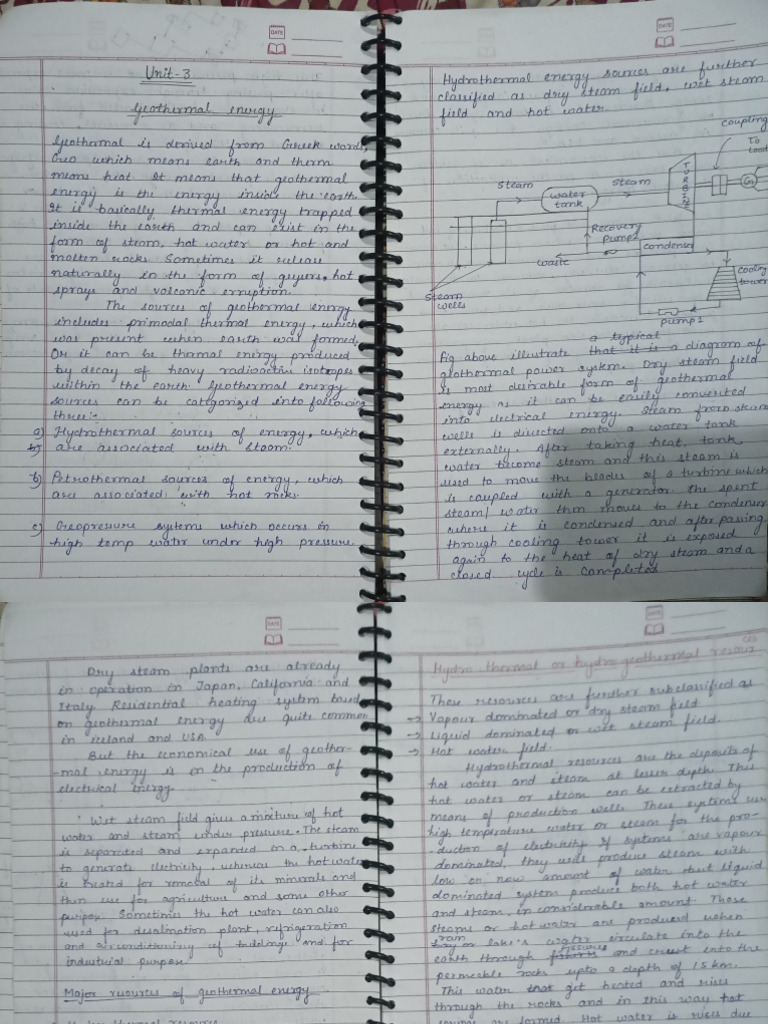 DATE
Unit-3
Geothermal energy
Geothermal is derived from Greek words,
Geo which means earth and therm
means heat. It means that geothermal
energy is the energy inside the earth.
It is basically thermal energy trapped
inside the earth and can exist in the
form of steam, hot water or hot and
molten rocks. Sometimes it release
naturally in the form of geysers, hot
sprays and volcanic erruption.
The sources of geothermal energy
includes primodal thermal energy, which
was present when earth was formed.
Or it can be thermal energy produced
by decay of heavy radioactive isotopes
within the earth. Geothermal energy
sources can be categorized into following
three:-
a) Hydrothermal sources of energy, which
are associated with steam.
b) Petrothermal sources of energy, which
are associated with hot rocks.
c) Geopressure systems which occurs in
high temp water under high pressure.
DATE
Hydrothermal energy sources are further
classified as dry steam field, wet steam
field and hot water.
coupling
To
Load
steam
water
tank
steam
TURBINE
G
Recovery
Pump2
condenser
waste
cooling
tower
steam
wells
Pump1
a typical
Fig above illustrate that it is a diagram of
geothermal power system. Dry steam field
is most desirable form of geothermal
energy as it can be easily converted
into electrical energy. Steam from steam
wells is directed onto a water tank
externally. After taking heat, tank,
water become steam and this steam is
used to move the blades of a turbine which
is coupled with a generator. the spent
steam/water then moves to the condenser
where it is condensed and after passing
through cooling tower it is exposed
again to the heat of dry steam and a
closed cycle is completed
DATE
Dry steam plants are already
in operation in Japan, California and
Italy. Residential heating system based
on geothermal energy are quite common
in iceland and USA.
But the economical use of geother-
-mal energy is in the production of
electrical energy.
Wet steam field gives a mixture of hot
water and steam under pressure. The steam
is separated and expanded in a turbine
to generate electricity, whereas the hot water
is treated for removal of its minerals and
then use for agriculture and some other
purpose. Sometimes the hot water can also
used for desalination plant, refrigeration
and airconditioning of buildings and for
industrial purpose.
Major resources of geothermal energy
DATE
Hydro thermal or hydro geothermal resour
ces
These resources are further subclassified as
→ Vapour dominated or dry steam field
→ Liquid dominated or wet steam field.
→ Hot water field.
Hydrothermal resources are the deposits of
hot water and steam at lesser depth. This
hot water or steam can be extracted by
means of production wells. These systems use
high temperature water or steam for the pro-
-duction of electricity. If systems are vapour
dominated, they will produce steam with
low or now amount of water but liquid
dominated system produce both hot water
and steam, in considerable amount. These
steams or hot water are produced when
rain or lake's water circulate into the
fissures
earth through and crust into the
permeable rocks upto a depth of 15 km.
This water that get heated and rises
through the rocks and in this way hot
are formed. Hot water is rises due